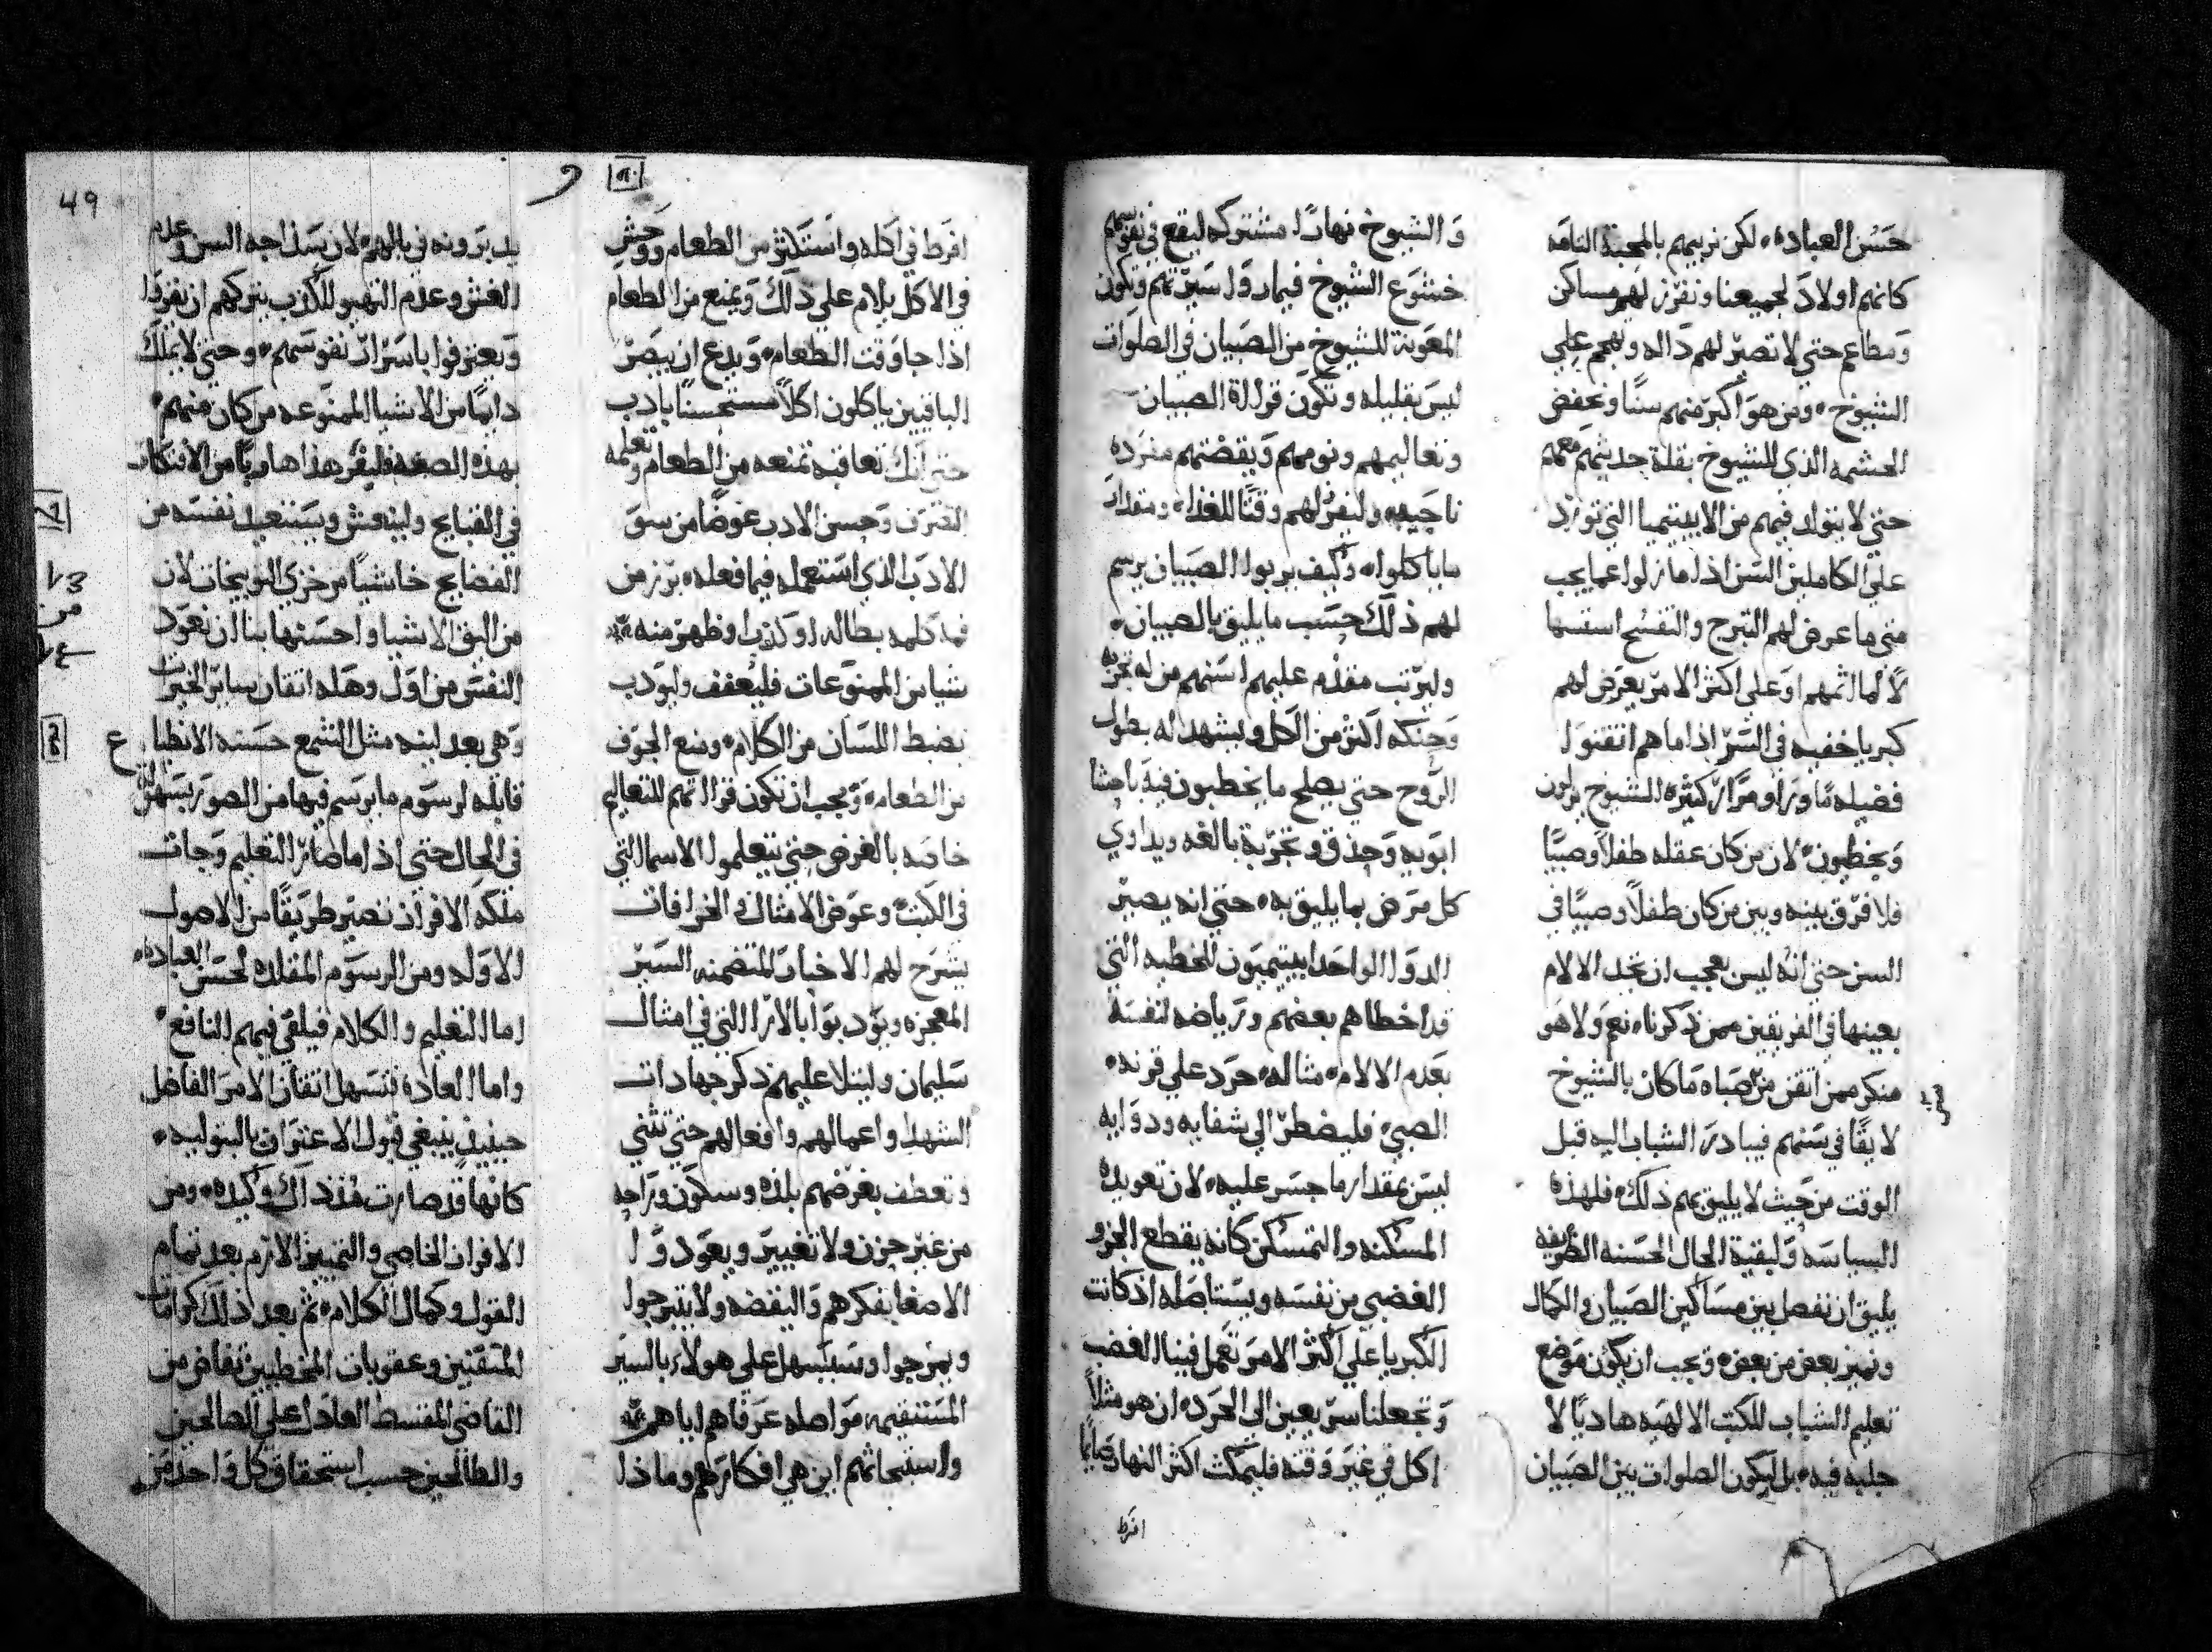 حسن العباده، لكن نربيهم بالمحبة التامه
كانهم اولاد لجميعنا ونفرز لهم مساكن
ومطاعم حتي لا تصير لهم داله وهجم علي
الشيوخ، ومن هو اكبر منهم سنًا وتخفض
الحشمه الذي للشيوخ بقلة حديثهم معهم
حتي لا يتولد فيهم من الابيتيميا التي تورد
علي الكاملين السن اذا ما زلوا عما يجب
متي ما عرض لهم التبرج والتفسح استسها
لًا لماثمهم او علي اكثر الامر يعرض لهم
كبريا خفيه في السر اذا ما هم اتقنوا
فضيله مًا وراو مرارًا كثيره الشيوخ يزلون
ويخطيون، لان من كان عقله طفلًا وصبيًا
فلا فرق بينه وبين من كان طفلًا وصبيًا في
السن حتي انه ليس بعجب ان تجد الالام
بعينها في الفريقين ممن ذكرناه نعم ولا هو
منكر ممن اتقن من صباه ما كان بالشيوخ
لايقًا في سنهم فيبادر الشباب اليه قبل
الوقت من حيث لا يليق بهم ذلك، فلهذه
السياسه ولبقية الحال الحسنه الظريفه
يليق ان نفصل بين مساكين الصبيان والكمال
ونميز بعض من بعض، ويجب ان يكون موضع
تعليم الشباب للكتب الالهيه هاديًا لا
جلبه فيه، بل ليكون الصلوات بين الصبيان
والشيوخ نهارًا مشتركه ليقع في نفوسهم
خشوع الشيوخ فيماروا سيرتهم وتكون
المعونة للشيوخ من الصبيان في الصلوات
ليس بقليله وتكون قراة الصبيان
وتعاليمهم ونومهم ويقضتهم مفرده
ناحيه، وليفرز لهم وقتًا للغذاء ومقدار
ما ياكلواه وكيف يربوا الصبيان يرسم
لهم ذلك حسب ما يليق بالصبيان،
وليرتب مقدم عليهم اسنهم من له تجربه
وحنكه اكثر من الكل ويشهد له بطول
الروح حتي يصلح ما يخطيون فيه باحشا
ابويه وحذق وتجربة بالغه ويداوي
كل مرض بما يليق به، حتي انه يصير
الدوا الواحد ابيتيميون للخطيه التي
قد اخطاهم بعضهم ورياضه لنفسه
بعدم الالام، مثاله، حرد علي قرنه،
الصبي، فليضطر الي شفايه ودوايه
ليس بمقدار ما جسر عليه، لان تعويده
المسكنه والتمسكن كانه يقطع الجزو
الغضبي من نفسه ويستاصله اذ كانت
الكبريا علي اكثر الامر تعمل فينا الغضب
وتجعلنا سريعين الي الحرده ان هو مثلًا
اكل في غير وقته فليمكث اكثر النهار صايمًا
افرط
49
افرط في اكله واستكثر من الطعام ووحش
في الاكل يلام علي ذلك ويمنع من الطعام
اذا جا وقت الطعام، ويدع ان يبصر
الباقيين ياكلون اكلًا مستحسنًا بادب
حتي انك تعاقبه تمنعه من الطعام وتعلمه
التصرف وحسن الادب عوضًا من سو
الادب الذي استعمله فيما فعله، برز من
فمه كلمه بطاله او كذب او ظهر منه
شيا من الممنوعات فليعفف وليودب
بضبط اللسان من الكلام، ومنع الجوف
من الطعام، ويجب ان تكون قراتهم للتعاليم
خاصه بالغرض حتي يتعلموا الاسما التي
في الكتب، وعوض الامثال والخرافات
يشرح لهم الاخبار المتضمنه السير
المعجزه ويودبوا بالارا التي في امثال
سليمان وليتلا عليهم ذكر جهادات
الشهدا واعمالهم وافعالهم حتي تثني
وتعطف بغرضهم بلذه وسكون وراحه
من غير حزن ولا تغيير ويعودوا
الاصغا بفكرهم واليقضه ولا يتبرجوا
ويمرحوا وسيسهل علي هولاء بالسير
المستقيمه مواصله عرفاهم اياهم
واستبحاثهم اين هي افكارهم وماذا
يدبرونه في بالهم، لان سذاجه السن وعدم
الغش وعدم التهيو للكذب يتركهم ان يقروا
ويعترفوا باسرار نفوسهم، وحتي لا يملك
دايمًا من الاشيا الممنوعه من كان منهم،
بهذه الصفه فليفر هذا هاربًا من الافتكار
في القبايح ولينهش ويستعيد نفسه من
الفضايح خاشيًا من خزي التوبيخات لان
من اليق الاشيا واحسنها بنا ان نعود
النفس من اول وهله اتقان ساير الخيرات
وهي بعد لينه مثل الشمع حسنه الانطباع
قابله لرسوم ما يرسم فيها من الصور بسهوله
في الحال حتي اذا ما صار التعليم وجات
ملكة الافراز نصير طريقًا من الاصول
الاوله ومن الرسوم المقلده لحسن العباده،
اما التعليم والكلام فيلقي فيهم النافع،
واما العاده فتسهل اتقان الامر الفاضل
حينيذ ينبغي قبول الاعتراف بالبتوليه،
كانها قد صارت مفرد اك وكيده، ومن
الافراز الخاصي والتمييز الازم بعد تمام
القول وكمال الكلام، ثم بعد ذلك كرامات
المتقنين وعقوبات المخطيين تفاض من
القاضي المقسط العادل علي الصالحين
والطالحين حسب استحقاق كل واحد من